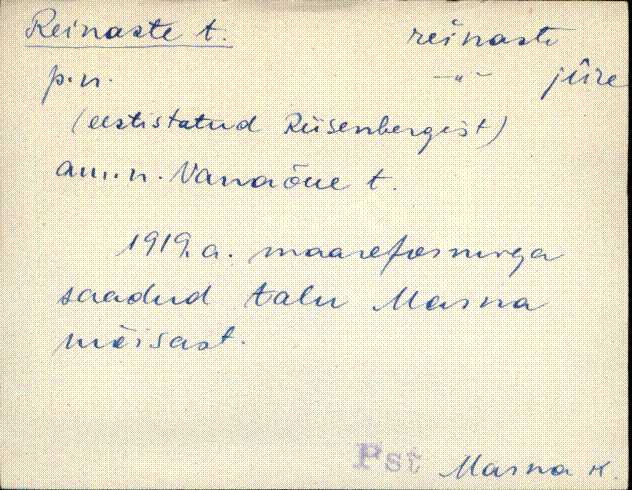 Reinaste t. reinaste
p.n. -"- jüre
(eestistatud Riisenbergist)
am.n. Vanaõue t.
1919.a. maareformiga
saadud talu Masna
mõisast.
Pst Masna k.